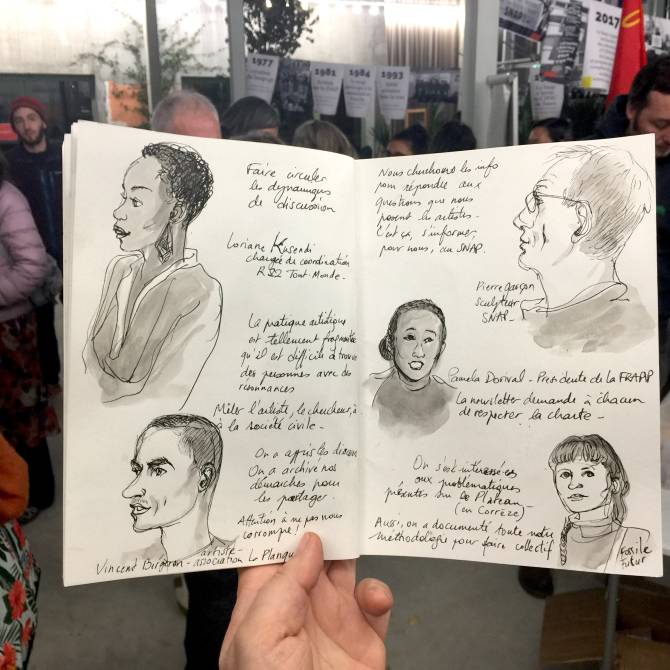 SNAP
2017
1977
1981
1984
1993
Faire circuler
les dynamiques
de discussion
Loriane Kasendi
chargée de coordination
R22 Tout-Monde -
La pratique artistique
est tellement fragmentée
qu'il est difficile à trouver
des personnes avec des
résonnances
Mêler l'artiste, le chercheur, à
à la société civile -
On a appris les
On a archivé nos
démarches pour
les partager.
Attention à ne pas nous
corrompre!
artiste -
Vincent Bergeron - association La Planque
Nous cherchons les infos
pour répondre aux
questions que nous
posent les artistes -
C'est ça, s'informer,
pour nous, au SNAP.
Pierre Garçon
sculpteur
SNAP -
Pamela Dorival - Présidente de la FRAAP
La newsletter demande à chacun
de respecter la charte -
On s'est intéressées
aux problématiques
présentes sur le Plateau
(en Corrèze)
Aussi, on a documenté toute notre
méthodologie pour faire collectif
Fossile
Futur